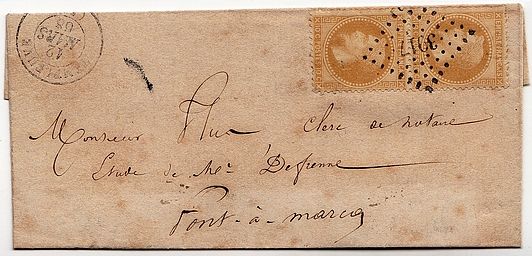 12
MARS
68
3017
Monsieur Flur Clerc de notaire
Etude de Me. Defrenne
Pont-à-marcq